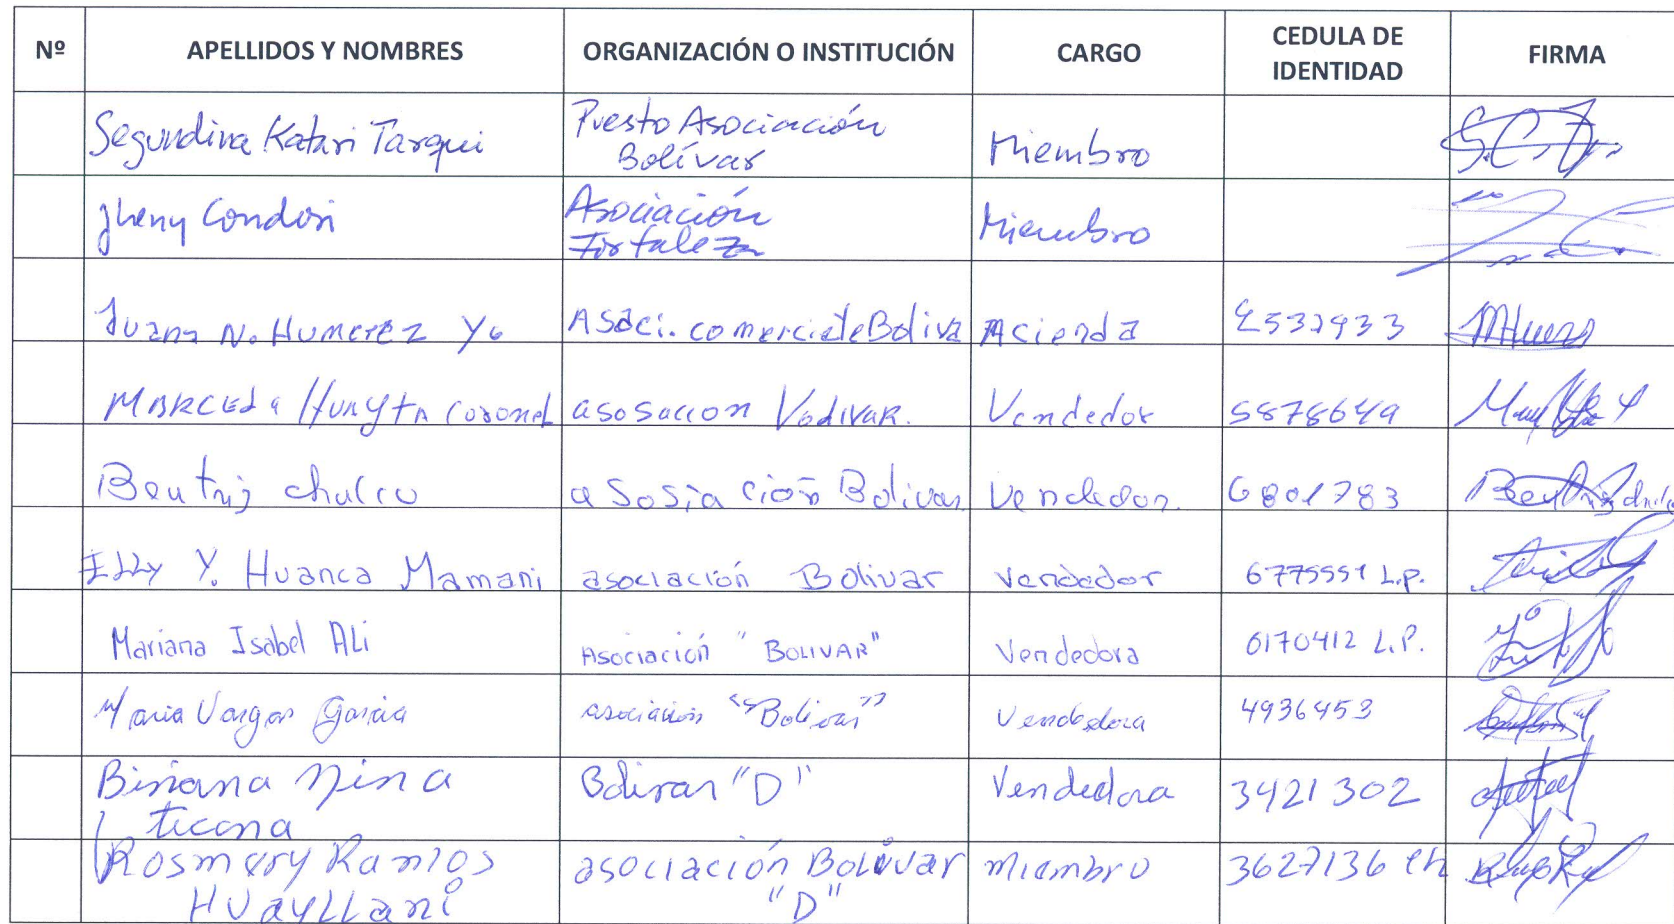 Nº APELLIDOS Y NOMBRES ORGANIZACIÓN O INSTITUCIÓN CARGO CEDULA DE IDENTIDAD FIRMA
Segundina Katari Tarqui Puesto Asociación Bolívar Miembro
Jheny Condori Asociación Fortaleza Miembro
Juana N. Humerez Asoci. comerciate Boliva Acienda
Marceda Huayta Coronel asosacion Vodivar. Vendedor 5878649
Beatriz chulco asosia ción Bolivar Vendedor. 6801783
Elly Y. Huanca Mamani asociación Bolivar vendedor 6775551 L.P.
Mariana Isabel Ali Asociación "BOLIVAR" Vendedora 6170412 L.P.
Maria Vargas Garcia asociación "Bolivar" Vendedora 4936453
Biviana Nina ticona Bolivar "D" Vendedora 3421302
Rosmery Ramos Huayllani asociación Bolívar "D" miembro 3627136